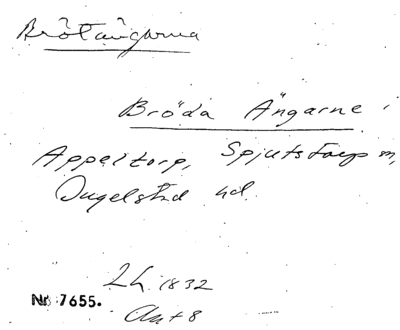 Brötängarna
Bröda Ängarne i
Appeltorp, Spjutstorps sn,
Ingelstad hd.
LL 1832
Nr 7655.
Akt 8